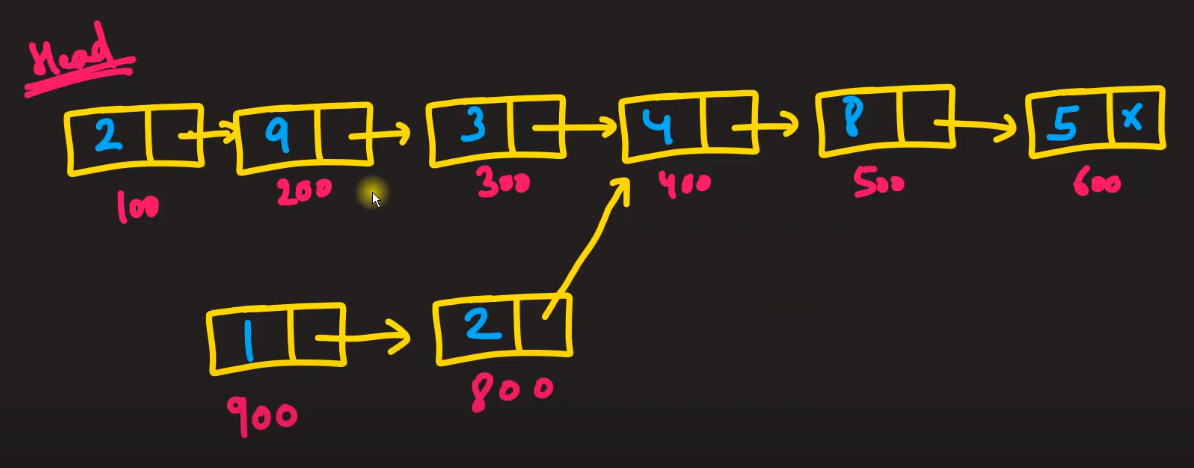 Head
2 9 3 4 8 5 x
100 200 300 400 500 600
1 2
900 800